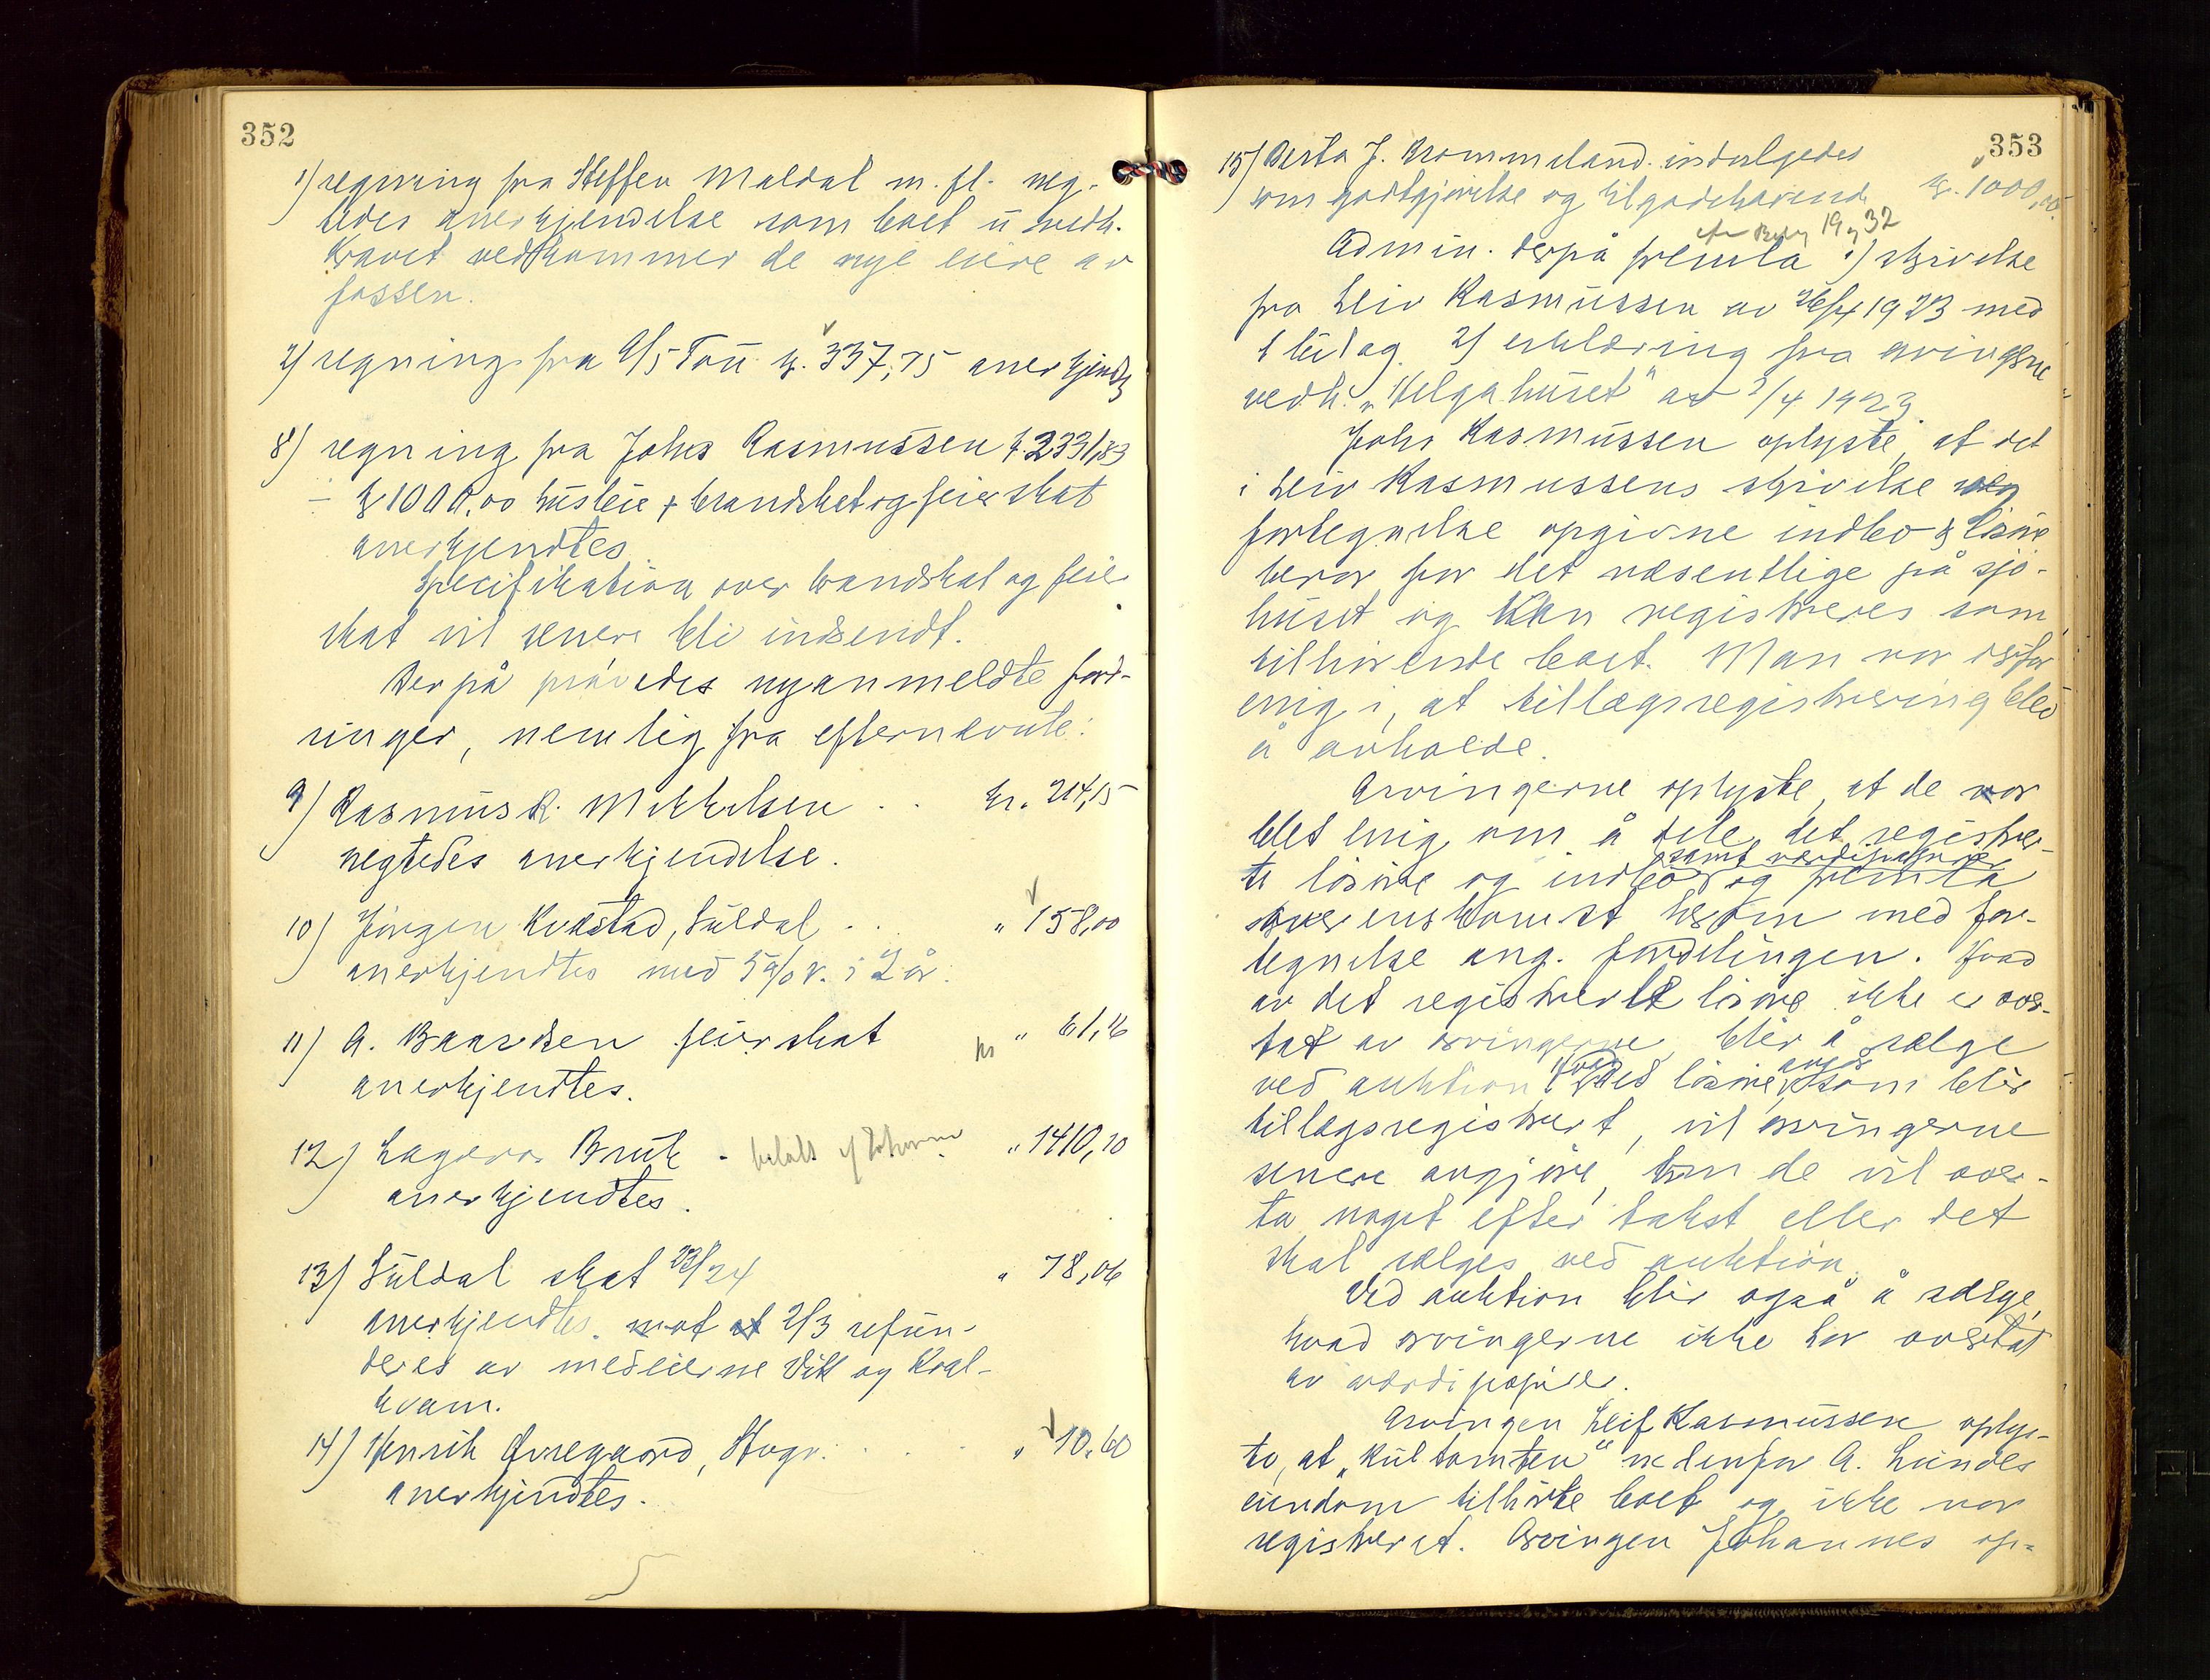 352
1) regning fra Steffen Maldal m. fl. neg-
tedes anerkjendelse som boet uvedk.
Kravet vedkommer de nye eiere av
fossen.
2) regning fra A/S Tou kr. 337,75 anerkjendes
8) regning fra Johs Rasmussen kr. 2331,83
÷ kr 1000,00 husleie + brandskat og feierskat
anerkjendtes.
Specifikation over brandskat og feie-
skat vil senere bli indsendt.
Derpå prøvedes nyanmeldte ford-
ringer, nemlig fra efternævnte:
9) Rasmus R. Mikkelsen . . kr. 214,15
negtedes anerkjendelse.
10) Jörgen Kvæstad, Suldal . . " 158,00
anerkjendtes med 5% r. i 2 år.
11) A. Baardsen feierskat " 61,16
anerkjendtes.
12) Lagerv. Bruk - betalt af " 1410,10
anerkjendtes.
13) Suldal skat 23/24 " 78,06
anerkjendtes mot at 2/3 refun-
deres av medeierne Vik og Kval-
kvam.
14) Henrik Ovregaard, Stvgr. . . . " 10,60
anerkjendtes.
353
15) Berta J. Brommeland indvilgedes
som godtgjörelse og tilgodehavende kr. 1000,00
19 32
Admin. derpå fremla 1) skrivelse
fra Leiv Rasmussen av 26/4 1923 med
1 bilag. 2) erklæring fra arvingerne
vedk. "Helgahuset" av 3/4 1923.
Johs Rasmussen oplyste, at det
i Leiv Rasmussens skrivelse
fortegnelse opgivne indbo & lösöre
beror for det væsentlige på sjö-
huset og kan registreres som
tilhörende boet. Man var derfor
enig i, at tillægsregistrering blev
å avholde.
Arvingerne oplyste, at de var
blet enig om å dele det registrer-
samt værdipapirer
te lösöre og indbo og fremla
overenskomst herom med for-
tegnelse ang. fordelingen. Hvad
av det registrerte lösöre ikke er over-
tat av arvingerne blir å sælge
ved auktion. Hvad det lösöre angår, som blir
tillægsregistrert, vil arvingerne
senere avgjöre, om de vil over-
ta noget efter takst eller det
skal sælges ved auktion.
Ved auktion blir også å sælge,
hvad arvingerne ikke har overtat
av værdipapirer.
Arvingen Leif Rasmussen oplys-
te, at "Kultomten" nedenfor A. Lundes
eiendom tilhörte boet og ikke var
registreret. Arvingen Johannes op-